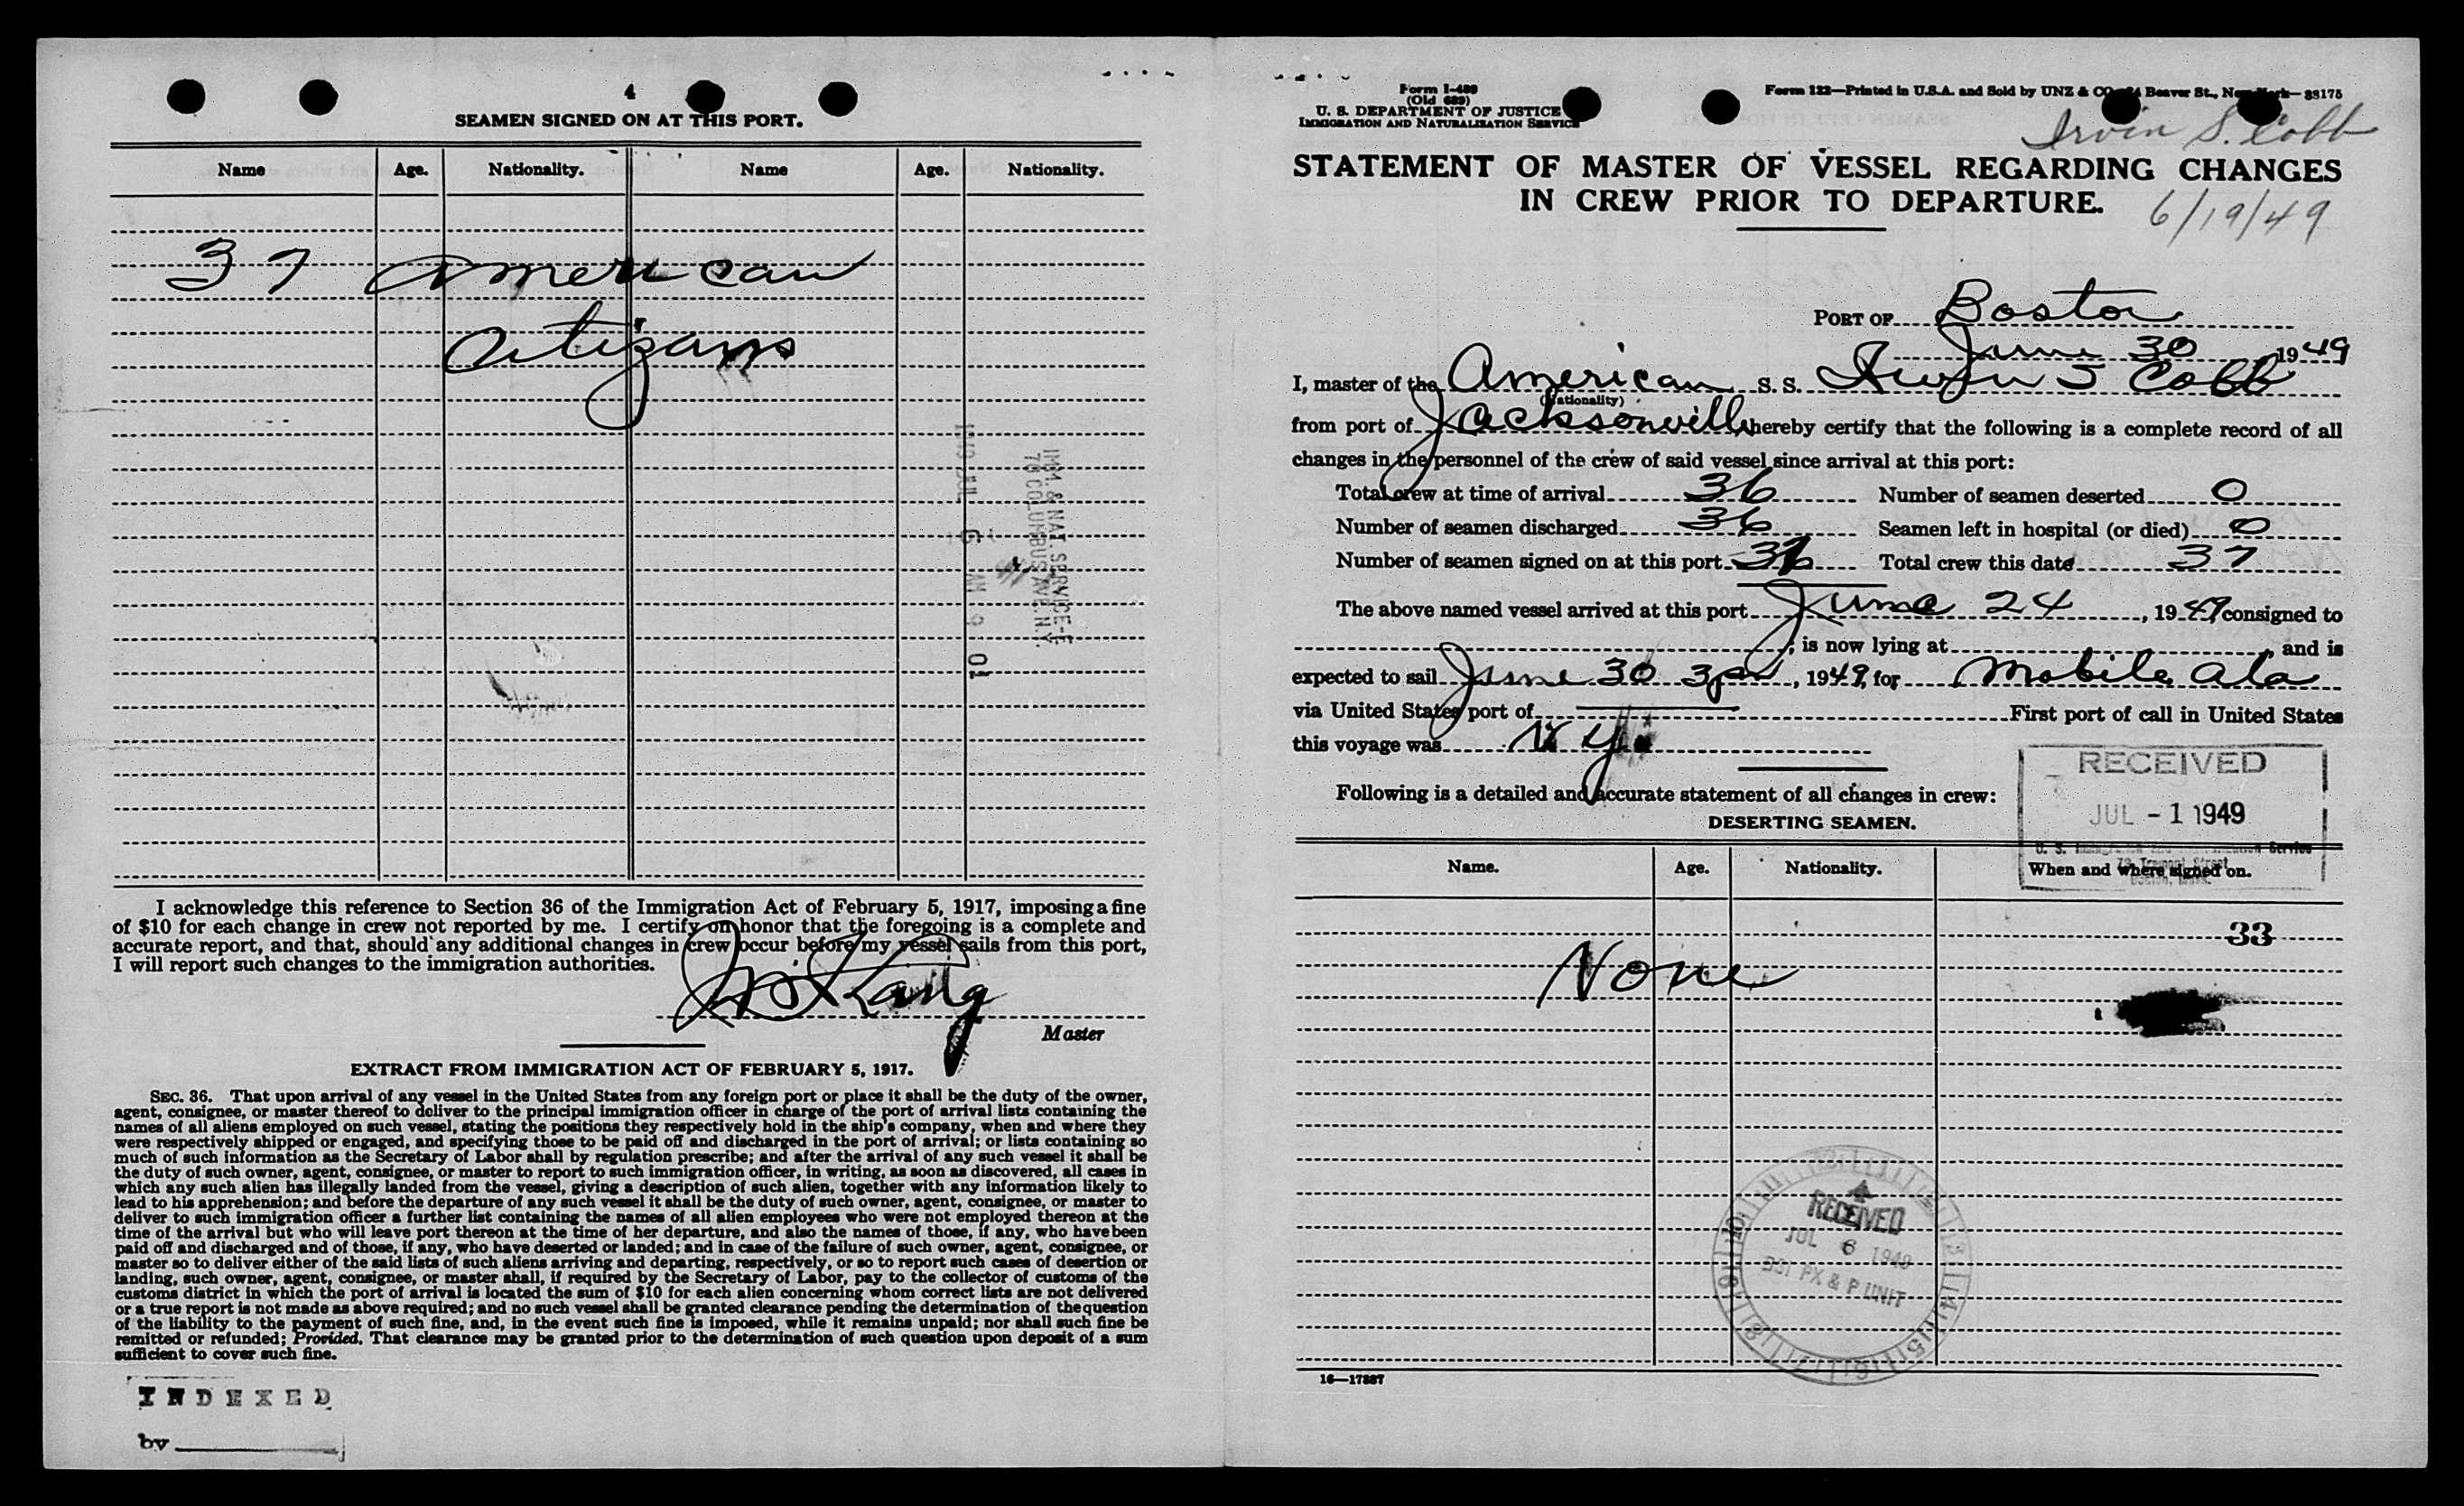 4
SEAMEN SIGNED ON AT THIS PORT.
Name Age. Nationality. Name Age. Nationality.
37 American
Citizans
IMM. & NAT. SERVICE-E
70 COLUMBUS AVE. N.Y.
1949 JUL 6 AM 9 01
I acknowledge this reference to Section 36 of the Immigration Act of February 5, 1917, imposing a fine
of $10 for each change in crew not reported by me. I certify on honor that the foregoing is a complete and
accurate report, and that, should any additional changes in crew occur before my vessel sails from this port,
I will report such changes to the immigration authorities.
Master
EXTRACT FROM IMMIGRATION ACT OF FEBRUARY 5, 1917.
SEC. 36. That upon arrival of any vessel in the United States from any foreign port or place it shall be the duty of the owner,
agent, consignee, or master thereof to deliver to the principal immigration officer in charge of the port of arrival lists containing the
names of all aliens employed on such vessel, stating the positions they respectively hold in the ship's company, when and where they
were respectively shipped or engaged, and specifying those to be paid off and discharged in the port of arrival; or lists containing so
much of such information as the Secretary of Labor shall by regulation prescribe; and after the arrival of any such vessel it shall be
the duty of such owner, agent, consignee, or master to report to such immigration officer, in writing, as soon as discovered, all cases in
which any such alien has illegally landed from the vessel, giving a description of such alien, together with any information likely to
lead to his apprehension; and before the departure of any such vessel it shall be the duty of such owner, agent, consignee, or master to
deliver to such immigration officer a further list containing the names of all alien employees who were not employed thereon at the
time of the arrival but who will leave port thereon at the time of her departure, and also the names of those, if any, who have been
paid off and discharged and of those, if any, who have deserted or landed; and in case of the failure of such owner, agent, consignee, or
master so to deliver either of the said lists of such aliens arriving and departing, respectively, or so to report such cases of desertion or
landing, such owner, agent, consignee, or master shall, if required by the Secretary of Labor, pay to the collector of customs of the
customs district in which the port of arrival is located the sum of $10 for each alien concerning whom correct lists are not delivered
or a true report is not made as above required; and no such vessel shall be granted clearance pending the determination of the question
of the liability to the payment of such fine, and, in the event such fine is imposed, while it remains unpaid; nor shall such fine be
remitted or refunded; Provided, That clearance may be granted prior to the determination of such question upon deposit of a sum
sufficient to cover such fine.
INDEXED
by
Form I-489
(Old 689)
U. S. DEPARTMENT OF JUSTICE
IMMIGRATION AND NATURALIZATION SERVICE
Form 122—Printed in U.S.A. and Sold by UNZ & CO. Beaver St., New York—33175
Irvin S. Cobb
STATEMENT OF MASTER OF VESSEL REGARDING CHANGES
IN CREW PRIOR TO DEPARTURE.
6/19/49
PORT OF Boston
June 30 1949
I, master of the American S. S. Irvin S Cobb
(Nationality)
from port of Jacksonville hereby certify that the following is a complete record of all
changes in the personnel of the crew of said vessel since arrival at this port:
Total crew at time of arrival 36 Number of seamen deserted 0
Number of seamen discharged 36 Seamen left in hospital (or died) 0
Number of seamen signed on at this port 37 Total crew this date 37
The above named vessel arrived at this port June 24, 1949, consigned to
; is now lying at , and is
expected to sail June 30 3pm, 1949, for Mobile Ala
via United States port of First port of call in United States
this voyage was N Y
Following is a detailed and accurate statement of all changes in crew:
RECEIVED
JUL - 1 1949
DESERTING SEAMEN.
Name. Age. Nationality. When and where signed on.
33
None
RECEIVED
JUL 6 1949
PX & P UNIT
16—17887